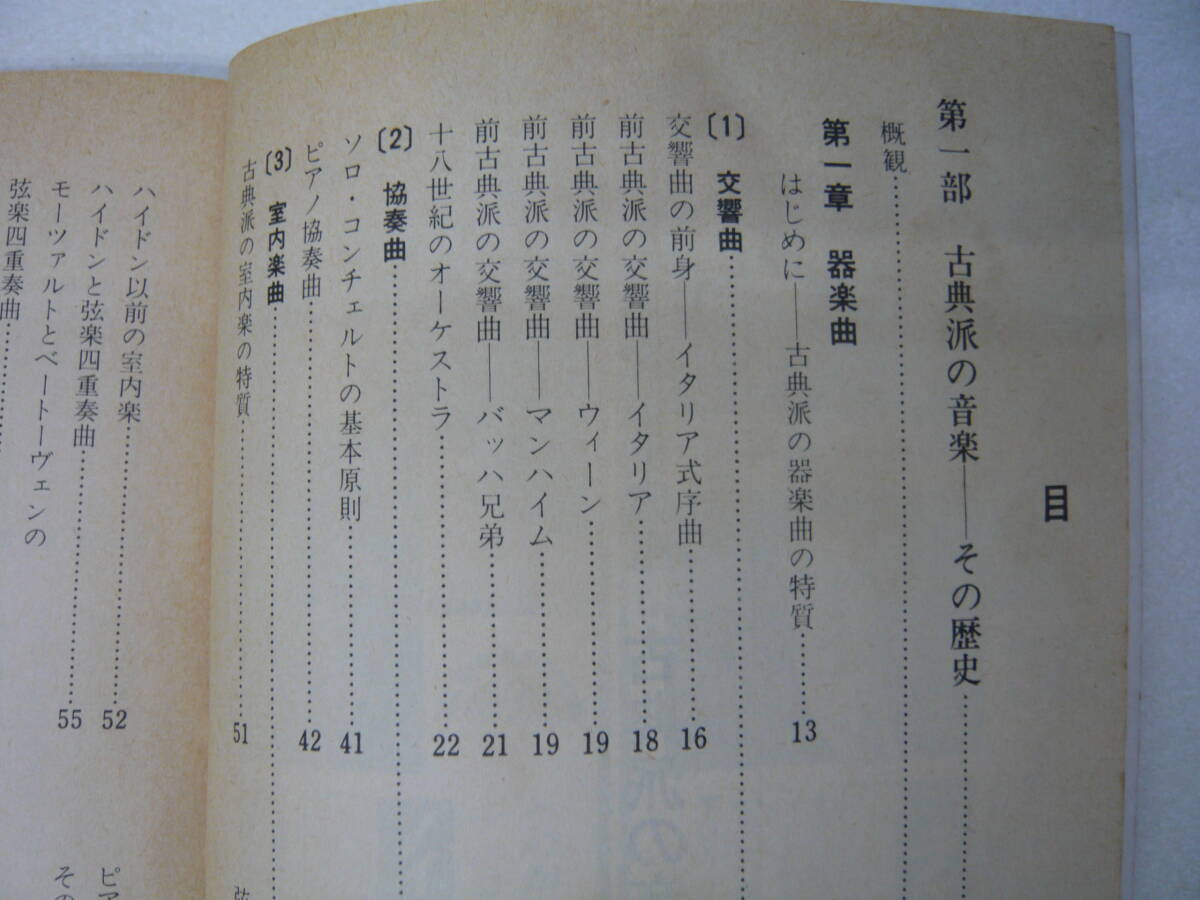 目
第一部　古典派の音楽――その歴史……
概観……
第一章　器楽曲
はじめに――古典派の器楽曲の特質……13
〔1〕　交響曲……
交響曲の前身――イタリア式序曲……16
前古典派の交響曲――イタリア……18
前古典派の交響曲――ウィーン……19
前古典派の交響曲――マンハイム……19
前古典派の交響曲――バッハ兄弟……21
十八世紀のオーケストラ……22
〔2〕　協奏曲……
ソロ・コンチェルトの基本原則……41
ピアノ協奏曲……42
〔3〕　室内楽曲……
古典派の室内楽の特質……51
弦
ハイドン以前の室内楽……52
ハイドンと弦楽四重奏曲……55
モーツァルトとベートーヴェンの
弦楽四重奏曲……
ピア
その